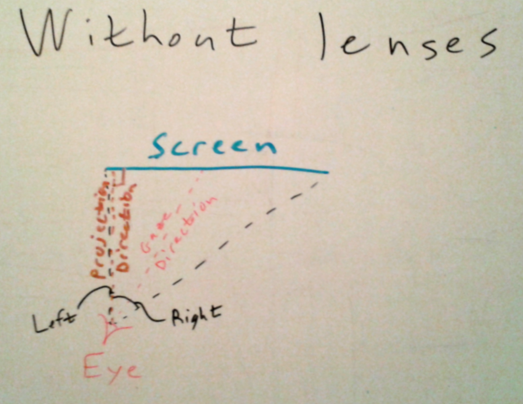 Without lenses
Screen
Projection
Direction
Gaze
Direction
Left
Right
Eye